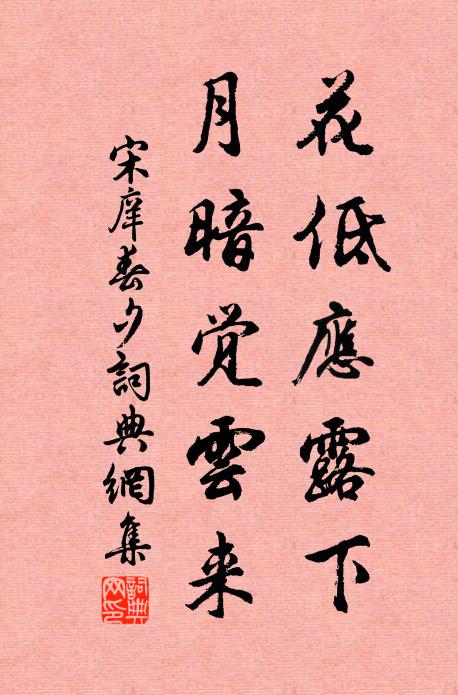 花低應露下
月暗覺雲来
宋庠春夕詞典網集
詞典網印